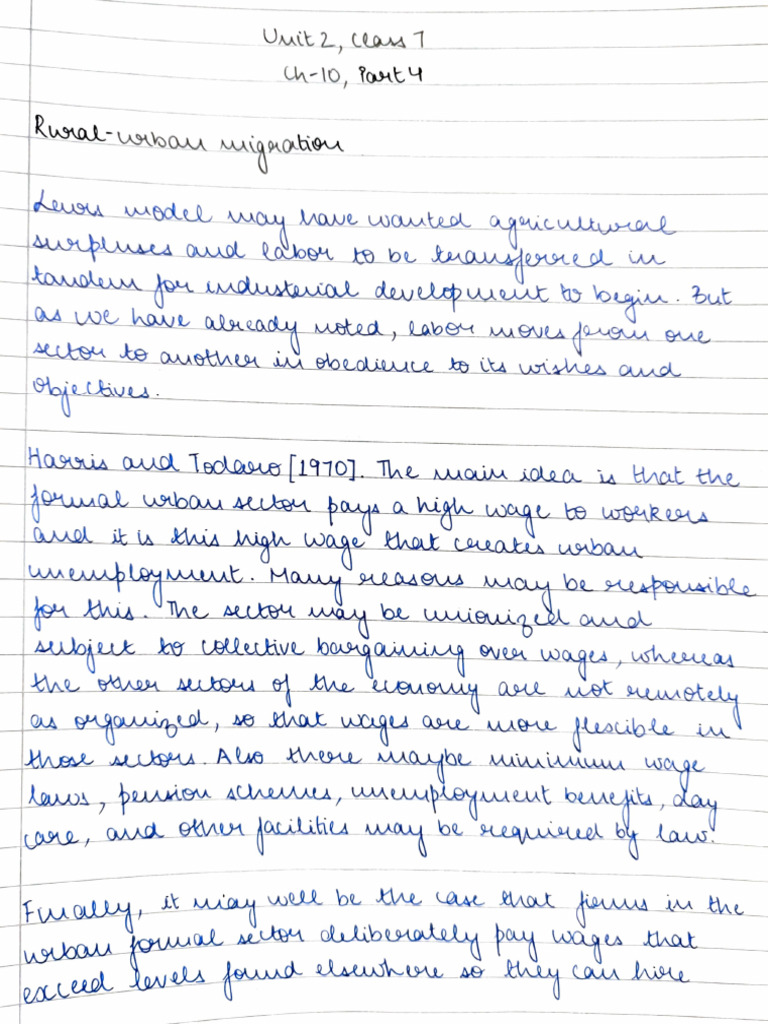 Unit 2, Class 7
Ch-10, Part 4
Rural-urban migration
Lewis model may have wanted agricultural
surpluses and labor to be transferred in
tandem for industerial development to begin. But
as we have already noted, labor moves from one
sector to another in obedience to its wishes and
objectives.
Harris and Todaro [1970]. The main idea is that the
formal urban sector pays a high wage to workers
and it is this high wage that creates urban
unemployment. Many reasons may be responsible
for this. The sector may be unionized and
subject to collective bargaining over wages, whereas
the other sectors of the economy are not remotely
as organized, so that wages are more flexible in
those sectors. Also there maybe minimum wage
laws, pension schemes, unemployment benefits, day
care, and other facilities may be required by law.
Finally, it may well be the case that firms in the
urban formal sector deliberately pay wages that
exceed levels found elsewhere so they can hire